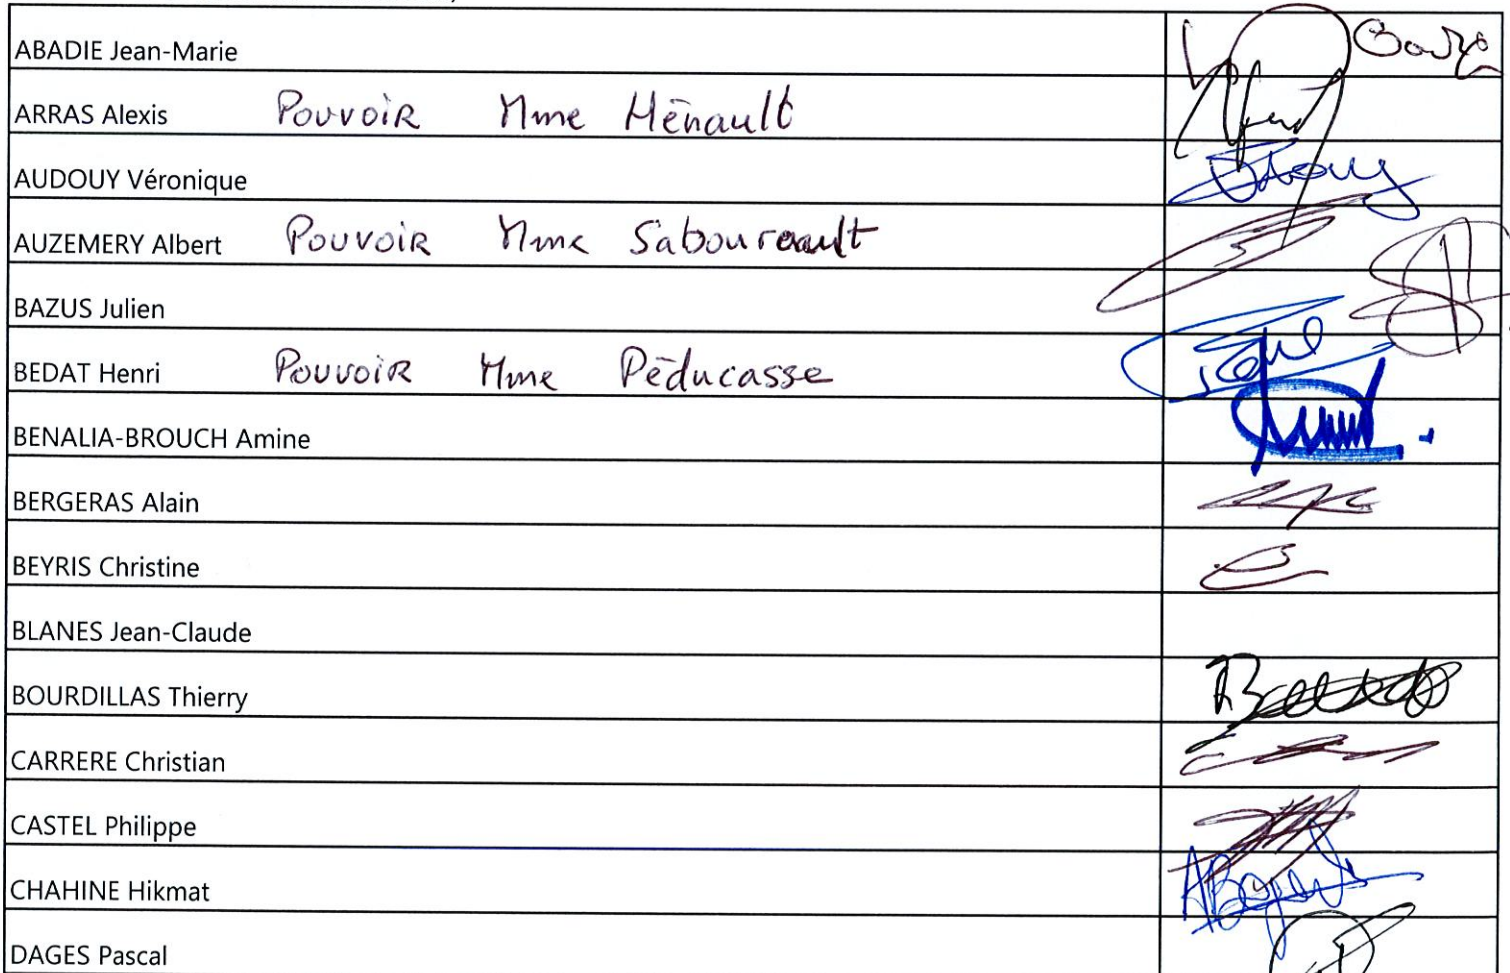 ABADIE Jean-Marie
ARRAS Alexis Pouvoir Mme Hénault
AUDOUY Véronique
AUZEMERY Albert Pouvoir Mme Sabourault
BAZUS Julien
BEDAT Henri Pouvoir Mme Péducasse
BENALIA-BROUCH Amine
BERGERAS Alain
BEYRIS Christine
BLANES Jean-Claude
BOURDILLAS Thierry
CARRERE Christian
CASTEL Philippe
CHAHINE Hikmat
DAGES Pascal